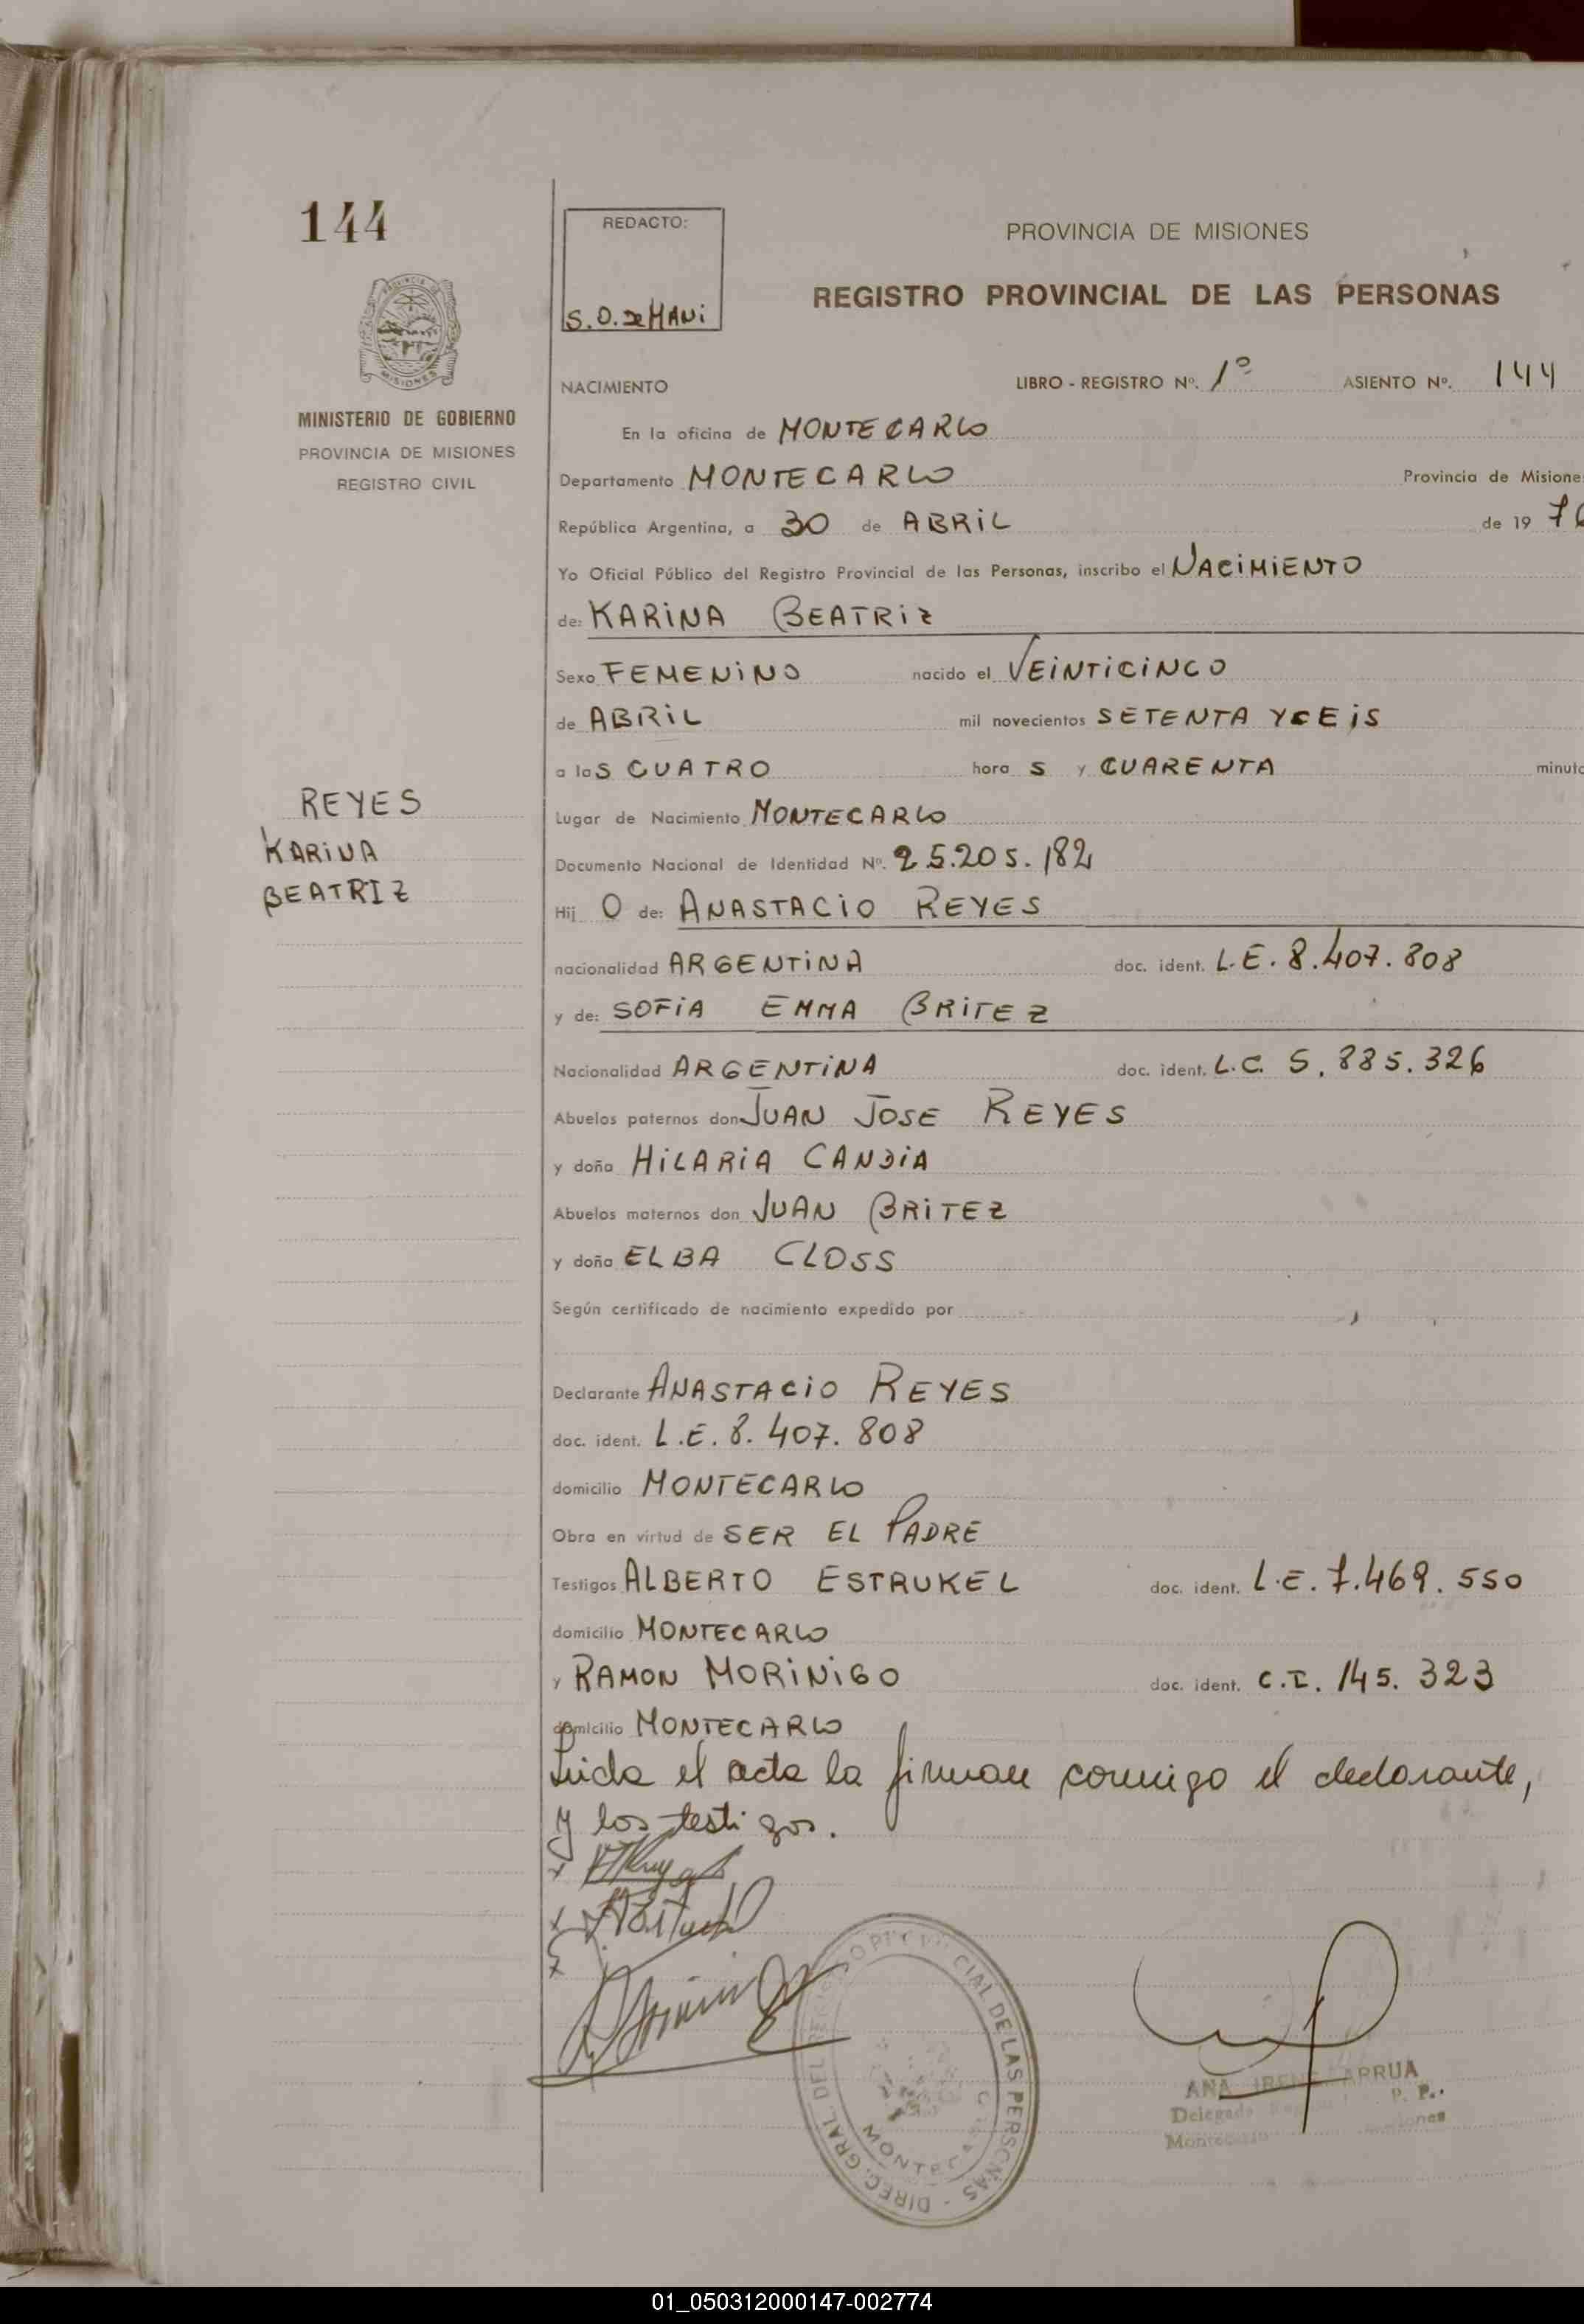 144
REDACTO:
S.O. DE MANI
PROVINCIA DE MISIONES
REGISTRO PROVINCIAL DE LAS PERSONAS
MISIONES
MINISTERIO DE GOBIERNO
PROVINCIA DE MISIONES
REGISTRO CIVIL
NACIMIENTO LIBRO - REGISTRO Nº. 1º ASIENTO Nº. 144
En la oficina de MONTECARLO
Departamento MONTECARLO Provincia de Misione
República Argentina, a 30 de ABRIL de 19 7
Yo Oficial Público del Registro Provincial de las Personas, inscribo el NACIMIENTO
de: KARINA BEATRIZ
Sexo FEMENINO nacido el VEINTICINCO
de ABRIL mil novecientos SETENTA YCEIS
a las CUATRO hora s y CUARENTA minuto
Lugar de Nacimiento MONTECARLO
REYES
KARINA
BEATRIZ
Documento Nacional de Identidad Nº. 25.205.182
Hij O de: ANASTACIO REYES
nacionalidad ARGENTINA doc. ident. L.E. 8.407.808
y de: SOFIA EMMA BRITEZ
Nacionalidad ARGENTINA doc. ident. L.C. 5.885.326
Abuelos paternos don JUAN JOSE REYES
y doña HILARIA CANDIA
Abuelos maternos don JUAN BRITEZ
y doña ELBA CLOSS
Según certificado de nacimiento expedido por
Declarante ANASTACIO REYES
doc. ident. L.E. 8.407.808
domicilio MONTECARLO
Obra en virtud de SER EL PADRE
Testigos ALBERTO ESTRUKEL doc. ident. L.E. 7.469.550
domicilio MONTECARLO
y RAMON MORINIGO doc. ident. C.I. 145.323
domicilio MONTECARLO
Leida el acta la firman conmigo el declarante,
y los testigos.
DIREC. GRAL. DEL CIAL DE LAS PERSONAS
MONTECARLO
ANA IRENE ARRUA
Delegada P. P.
Montecarlo Misiones
01_050312000147-002774